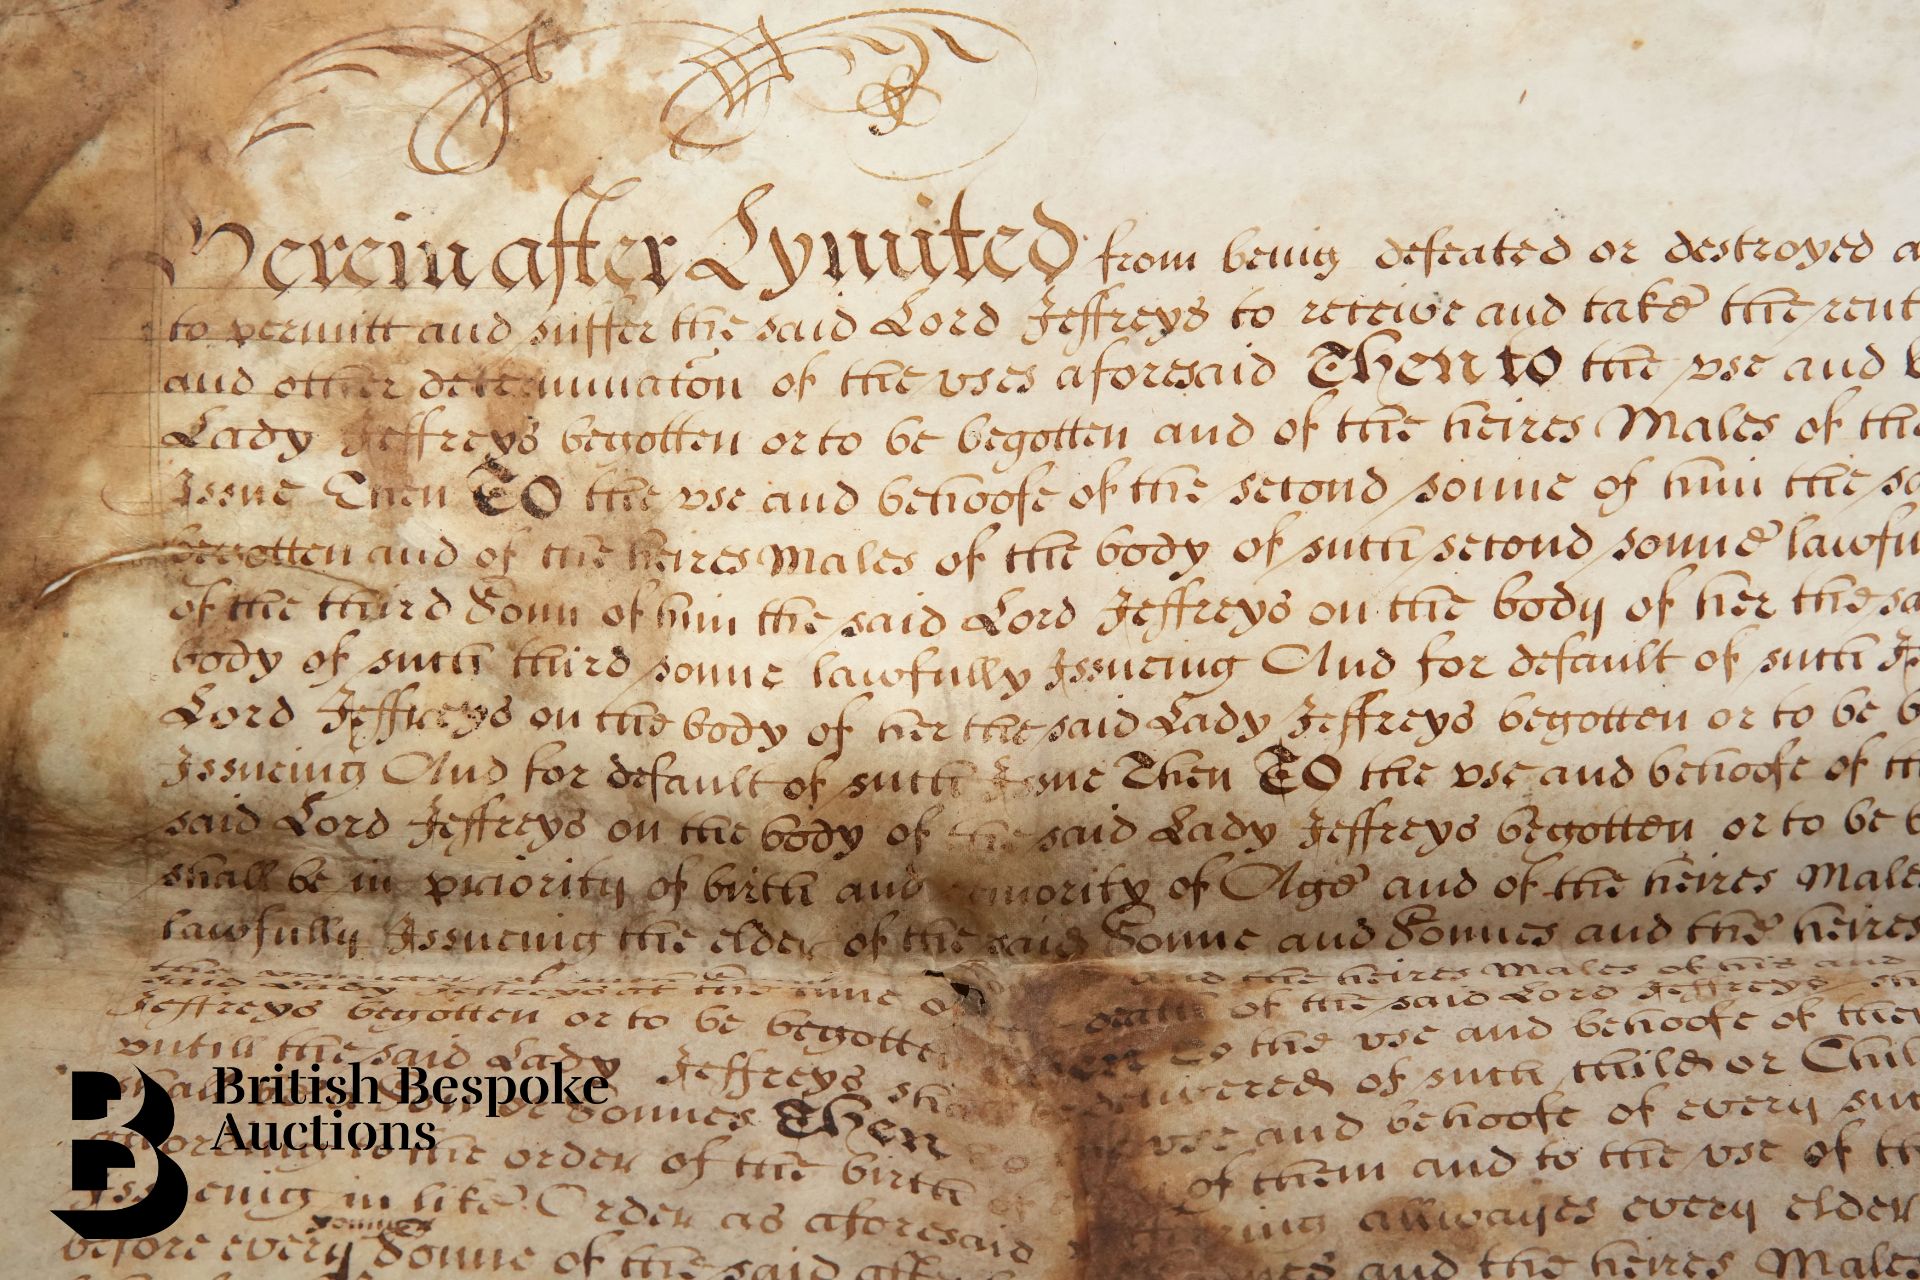 Hereinafter Lymited from being defeated or destroyed
to permitt and suffer the said Lord Jeffreys to receive and take the rent
and other determinacon of the vses aforesaid Then to the vse and
Lady Jeffreys begotten or to be begotten and of the heires Males of the
Issue Then TO the vse and behoofe of the second sonne of him the
begotten and of the heires Males of the body of such second sonne lawfu
of the third Sonn of him the said Lord Jeffreys on the body of her the sa
body of such third sonne lawfully Issueing And for default of such
Lord Jeffreys on the body of her the said Lady Jeffreys begotten or to be b
Issueing And for default of such Issue Then TO the vse and behoofe of
said Lord Jeffreys on the body of the said Lady Jeffreys begotten or to be b
shall be in priority of birth and seniority of Age and of the heires Male
lawfully Issueing the elder of the said Sonne and Sonnes and the heires
and the heires Males of his and
said Lady Jeffreys at the time of death of the said Lord Jeffreys
Jeffreys begotten or to be begotten Then To the vse and behoofe of
untill the said Lady Jeffreys shall be delivered of such child or Chil
shall be a Son or Sonnes Then vse and behoofe of every su
according to the order of the birth of them and to the vse of
Issueing in like Order as aforesaid allwayes every elder
younger
before every Sonne of the said and the heires Males
British Bespoke
Auctions